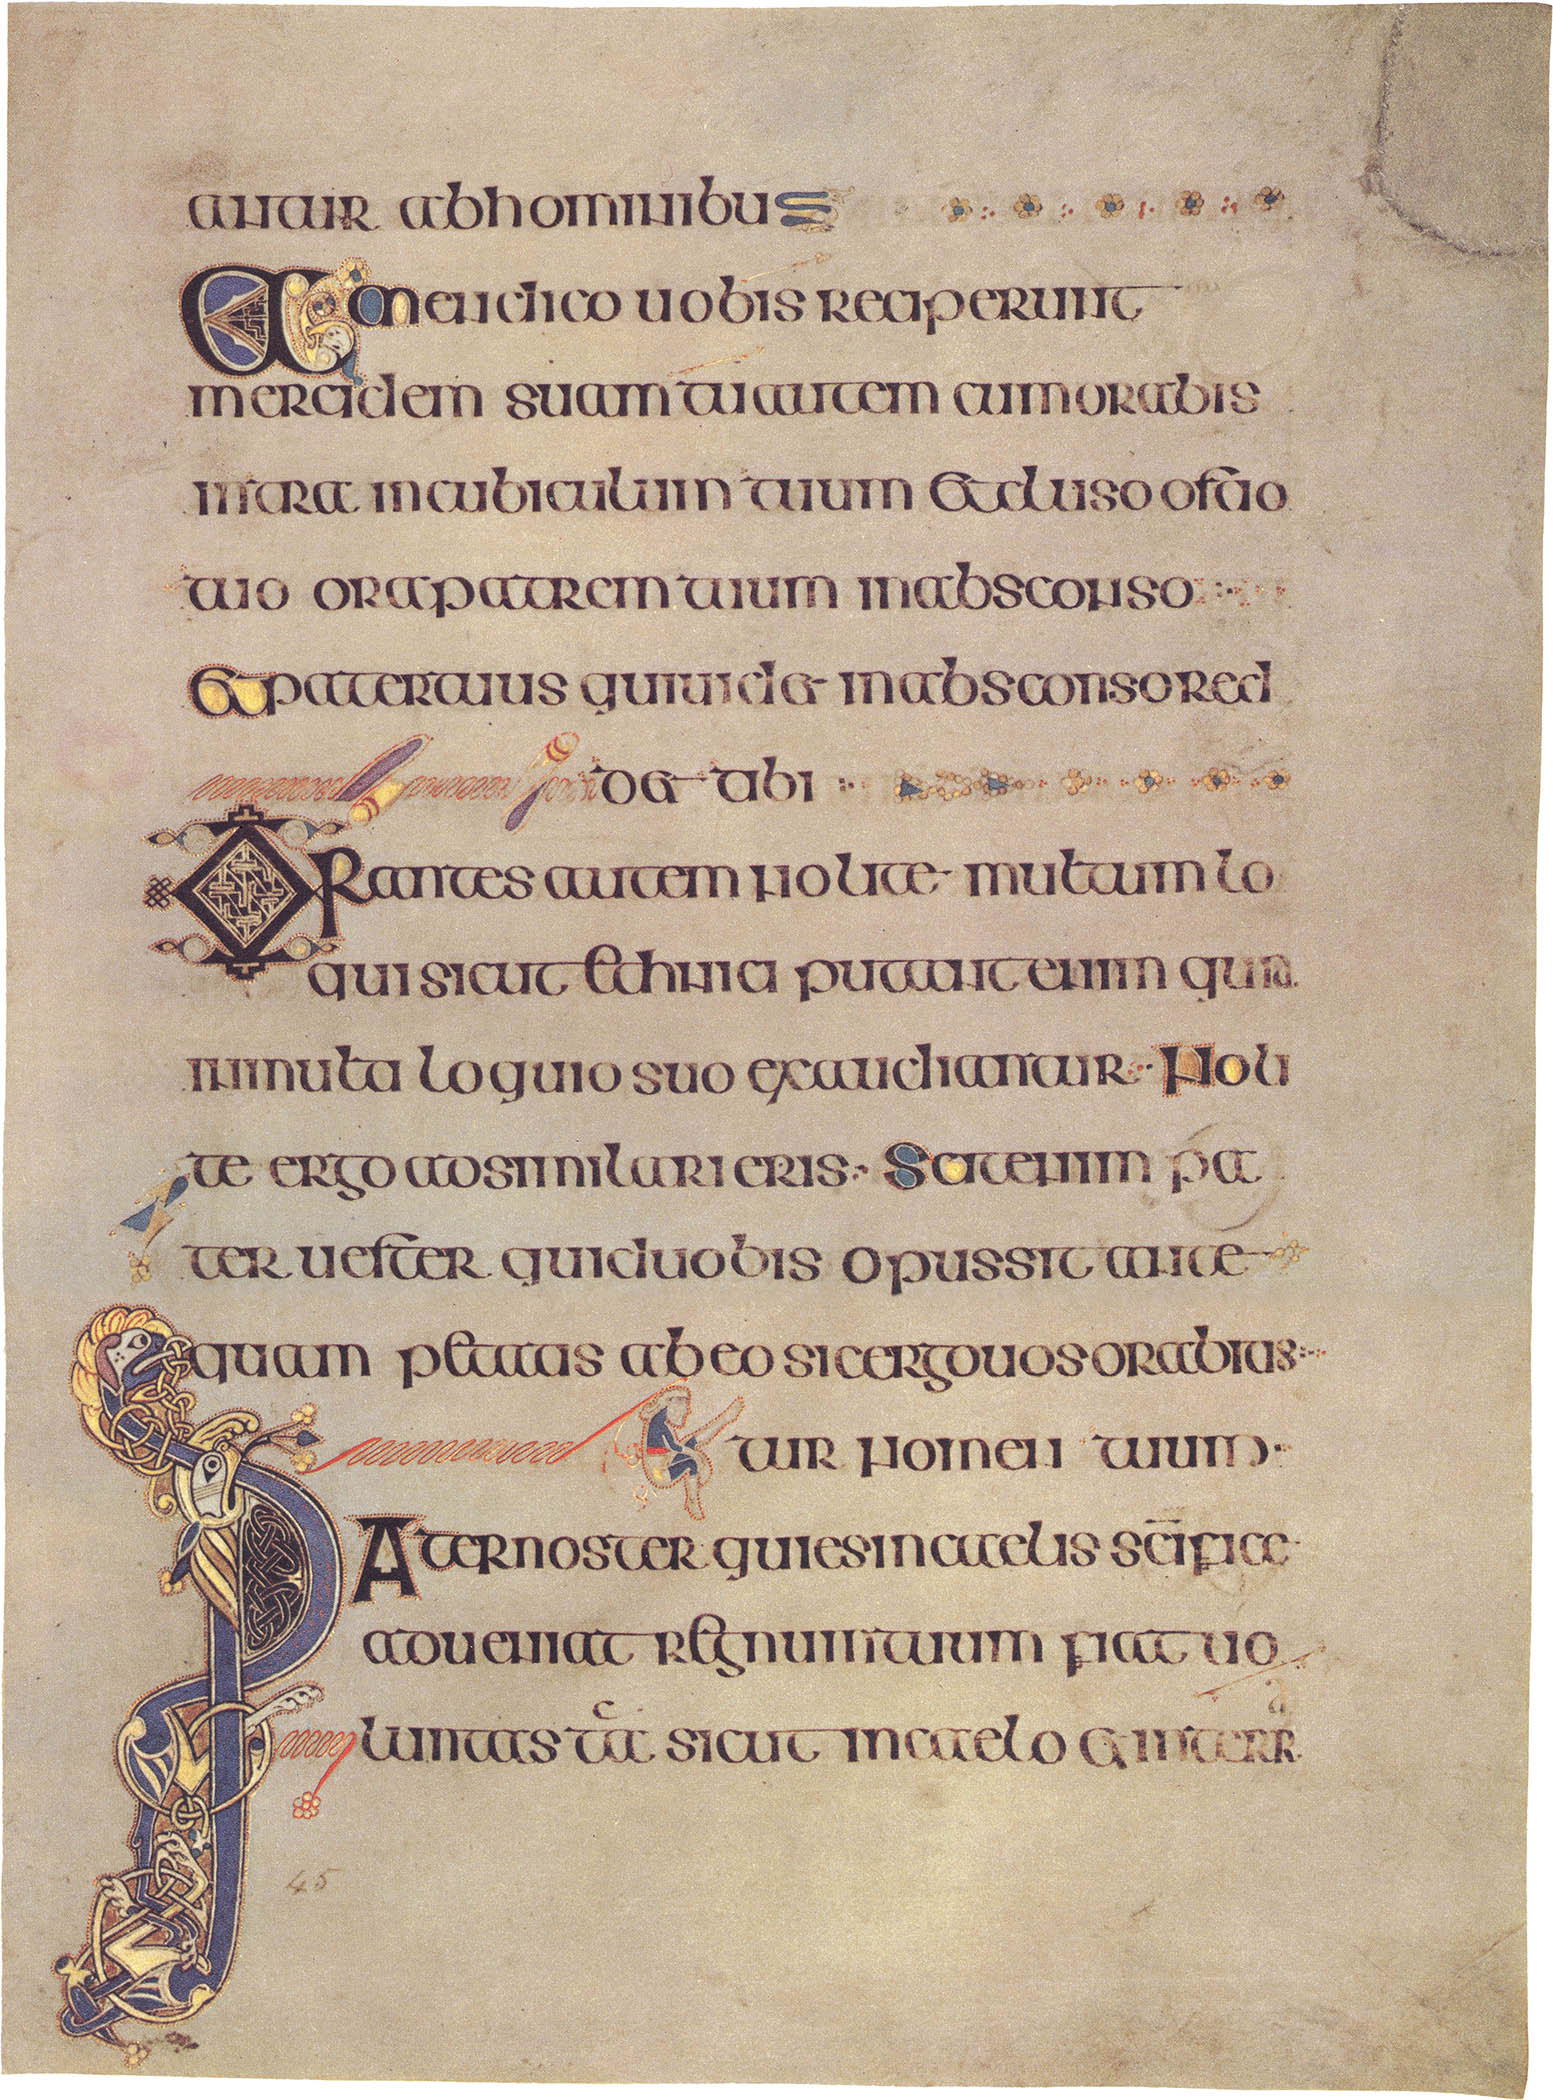 antur ab hominibus
Amen dico uobis reciperunt
mercidem suam tu autem cum orabis
intra in cubiculum tuum et cluso ostio
tuo ora patrem tuum in absconso
et pater tuus qui uidet in absconso red
det tibi
Orantes autem nolite multum lo
qui sicut ethnici putant enim quia
in multa loquio suo exaudiantur Noli
te ergo adsimilari eris Scit enim pa
ter uester quid uobis opus sit ante
quam petatis ab eo sic ergo uos orabitis
tur nomen tuum
Pater noster qui es in caelis scificae
adueniat regnum tuum fiat uo
luntas tua sicut in caelo et in terra
45